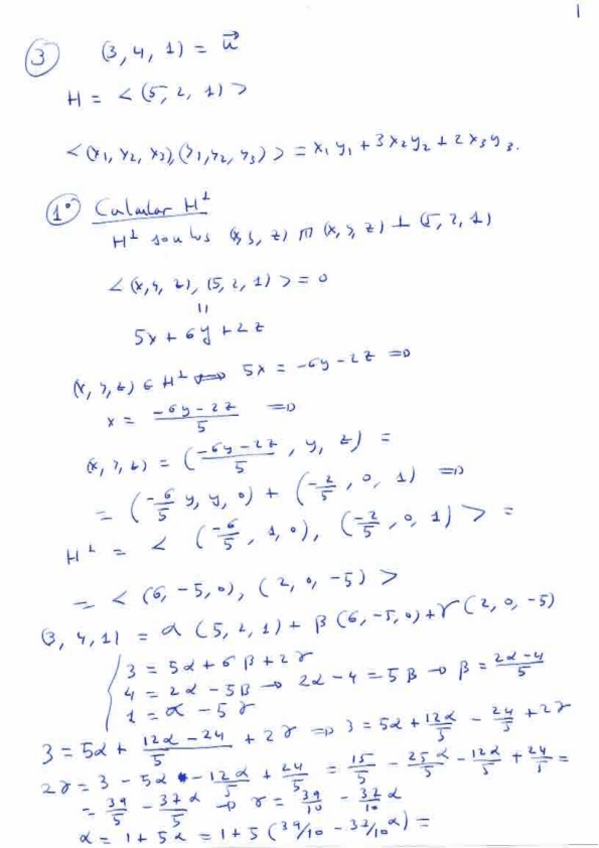 1
③ (3, 4, 1) = u⃗
H = < (5, 2, 1) >
<(x₁, x₂, x₃), (y₁, y₂, y₃)> = x₁y₁ + 3x₂y₂ + 2x₃y₃.
1º Calcular H^⊥
H^⊥ son los (x, y, z) (x, y, z) ⊥ (5, 2, 1)
<(x, y, z), (5, 2, 1)> = 0
||
5x + 6y + 2z
(x, y, z) ∈ H^⊥ ⟺ 5x = -6y - 2z ⟹
x = (-6y - 2z)/5 ⟹
(x, y, z) = ((-6y - 2z)/5, y, z) =
= (-6/5 y, y, 0) + (-2/5, 0, 1) ⟹
H^⊥ = < (-6/5, 1, 0), (-2/5, 0, 1) > =
= < (6, -5, 0), (2, 0, -5) >
(3, 4, 1) = α (5, 2, 1) + β (6, -5, 0) + γ (2, 0, -5)
3 = 5α + 6β + 2γ
4 = 2α - 5β → 2α - 4 = 5β → β = (2α - 4)/5
1 = α - 5γ
3 = 5α + (12α - 24)/5 + 2γ ⟹ 3 = 5α + 12α/5 - 24/5 + 2γ
2γ = 3 - 5α - 12α/5 + 24/5 = 15/5 - 25α/5 - 12α/5 + 24/5 =
= 39/5 - 37α/5 → γ = 39/10 - 37/10 α
α = 1 + 5α = 1 + 5 (39/10 - 37/10 α) =